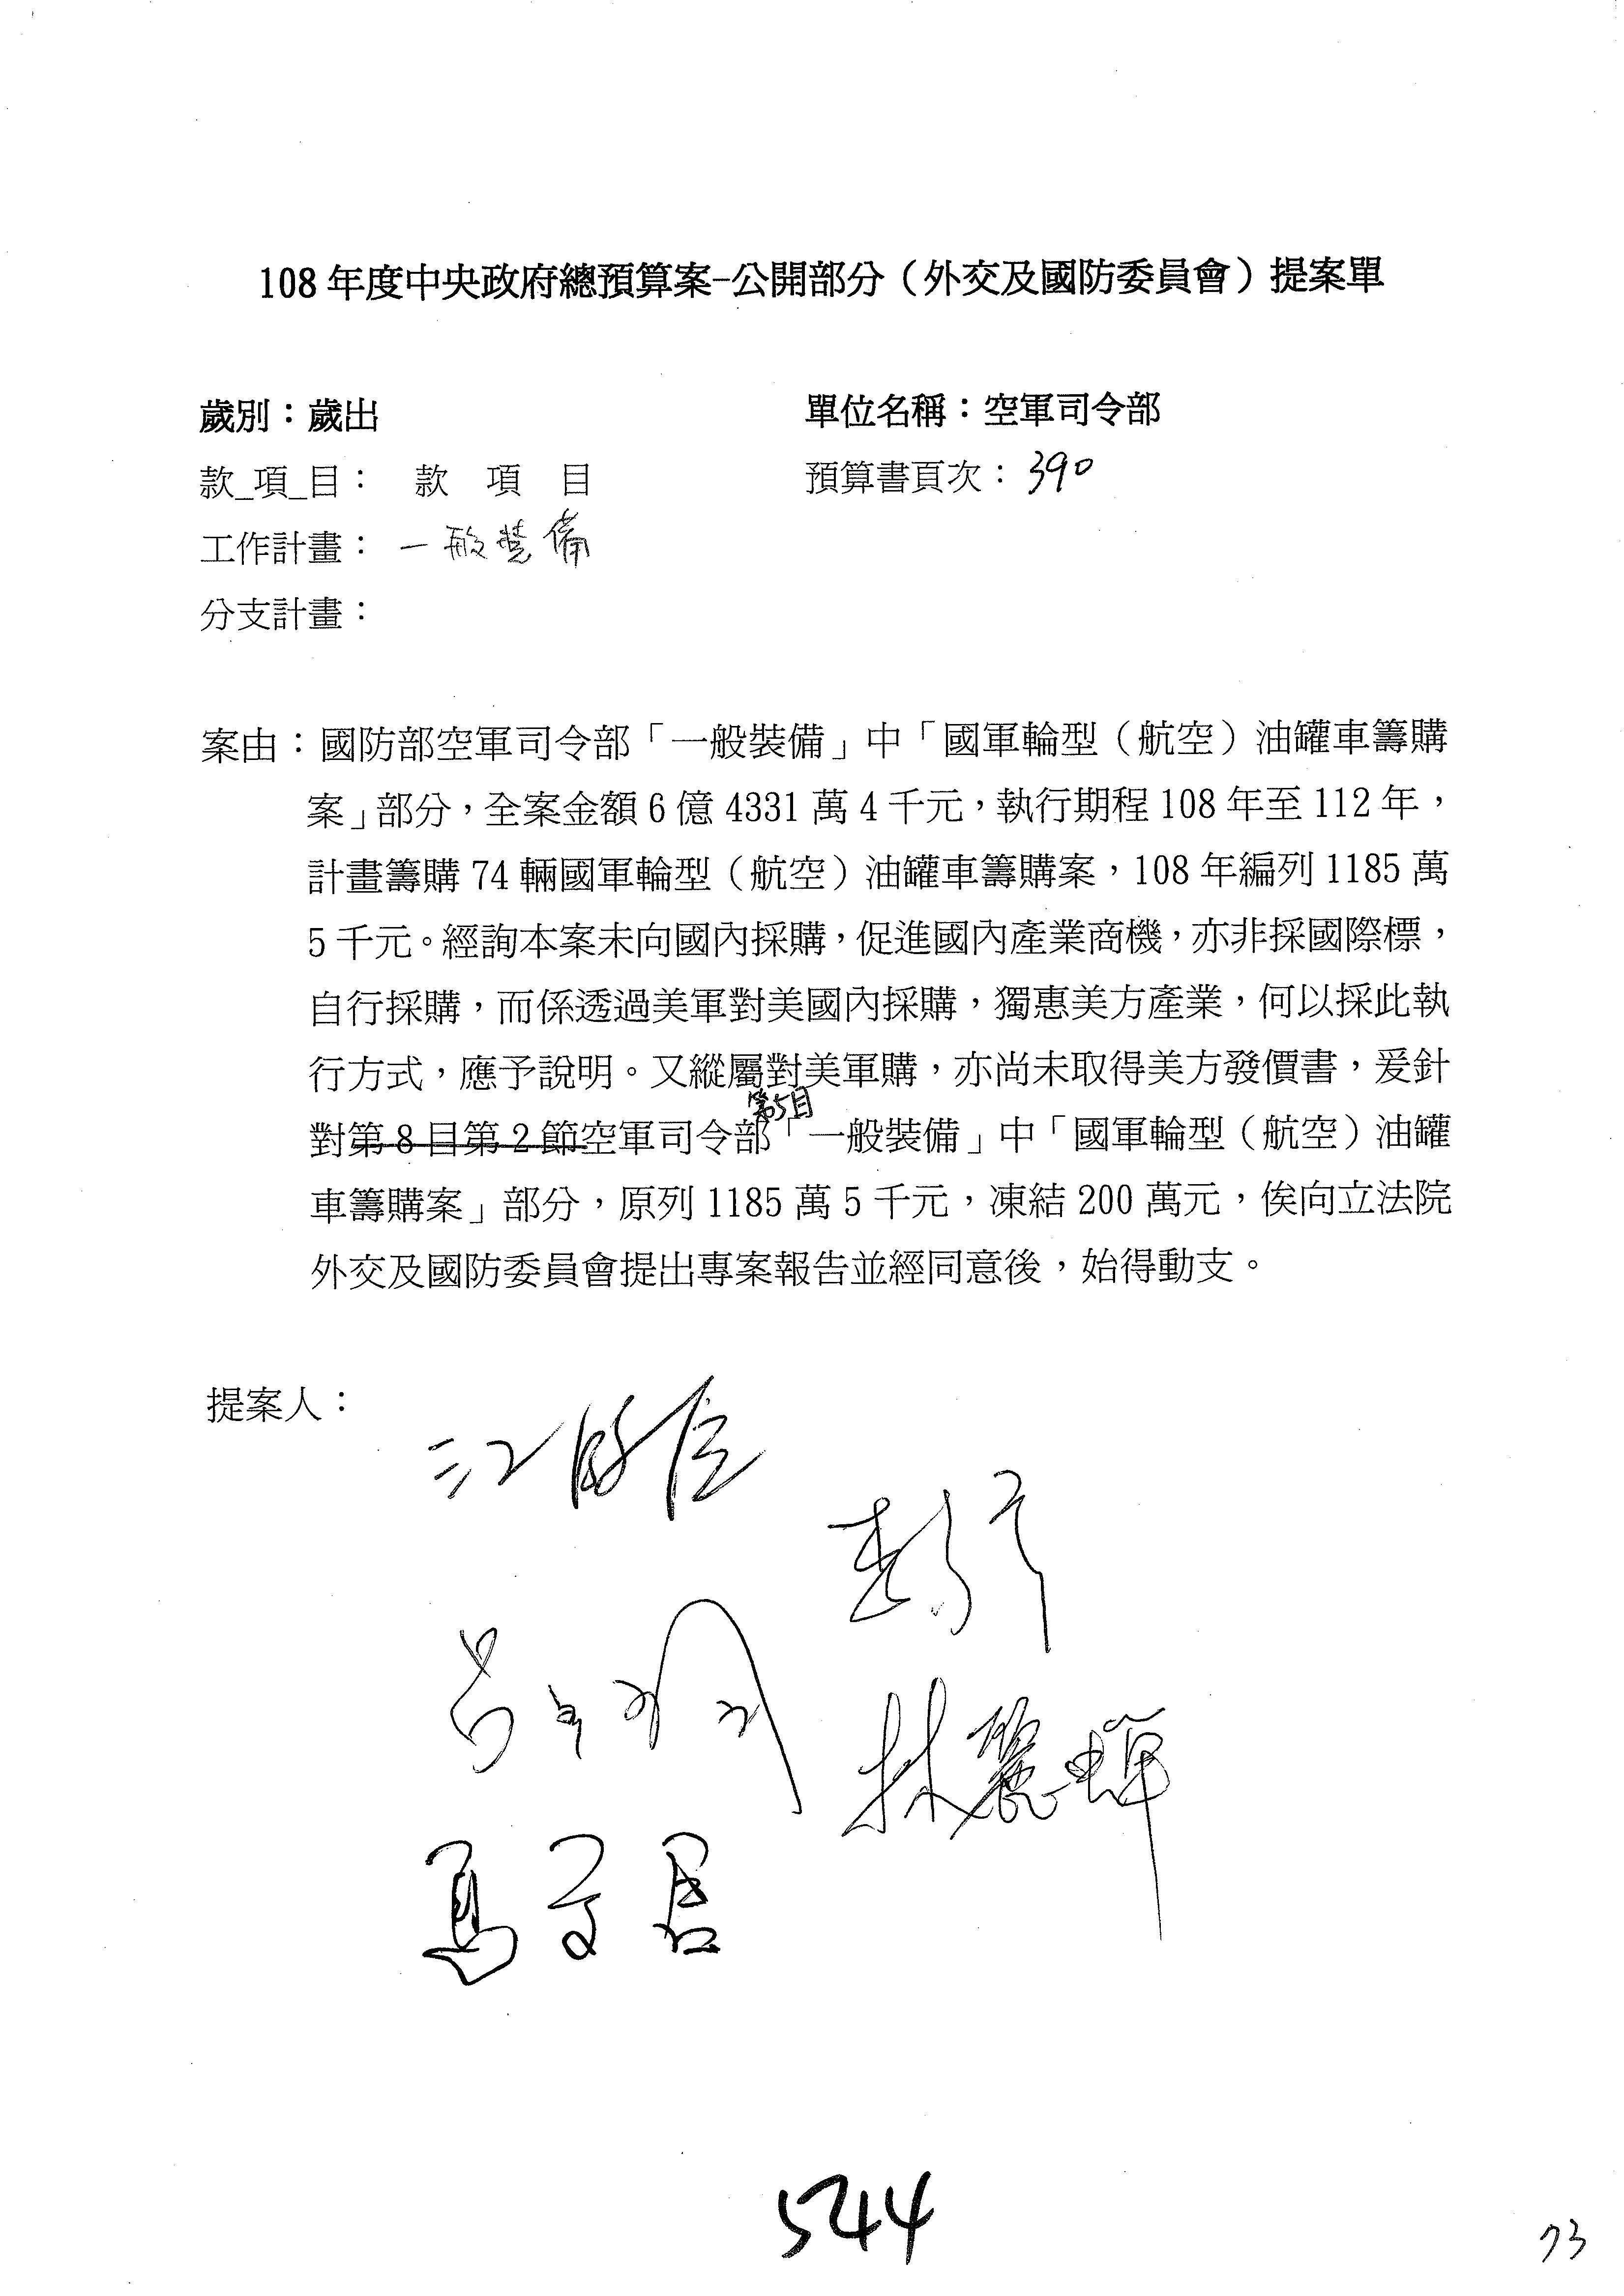 108年度中央政府總預算案-公開部分（外交及國防委員會）提案單
歲別：歲出 單位名稱：空軍司令部
款_項_目： 款 項 目 預算書頁次：390
工作計畫：一般裝備
分支計畫：
案由：國防部空軍司令部「一般裝備」中「國軍輪型（航空）油罐車籌購
案」部分，全案金額6億4331萬4千元，執行期程108年至112年，
計畫籌購74輛國軍輪型（航空）油罐車籌購案，108年編列1185萬
5千元。經詢本案未向國內採購，促進國內產業商機，亦非採國際標，
自行採購，而係透過美軍對美國內採購，獨惠美方產業，何以採此執
行方式，應予說明。又縱屬對美軍購，亦尚未取得美方發價書，爰針
第5目
對第8目第2節空軍司令部「一般裝備」中「國軍輪型（航空）油罐
車籌購案」部分，原列1185萬5千元，凍結200萬元，俟向立法院
外交及國防委員會提出專案報告並經同意後，始得動支。
提案人：
江啟臣
林麗蟬
馬文君
544
73